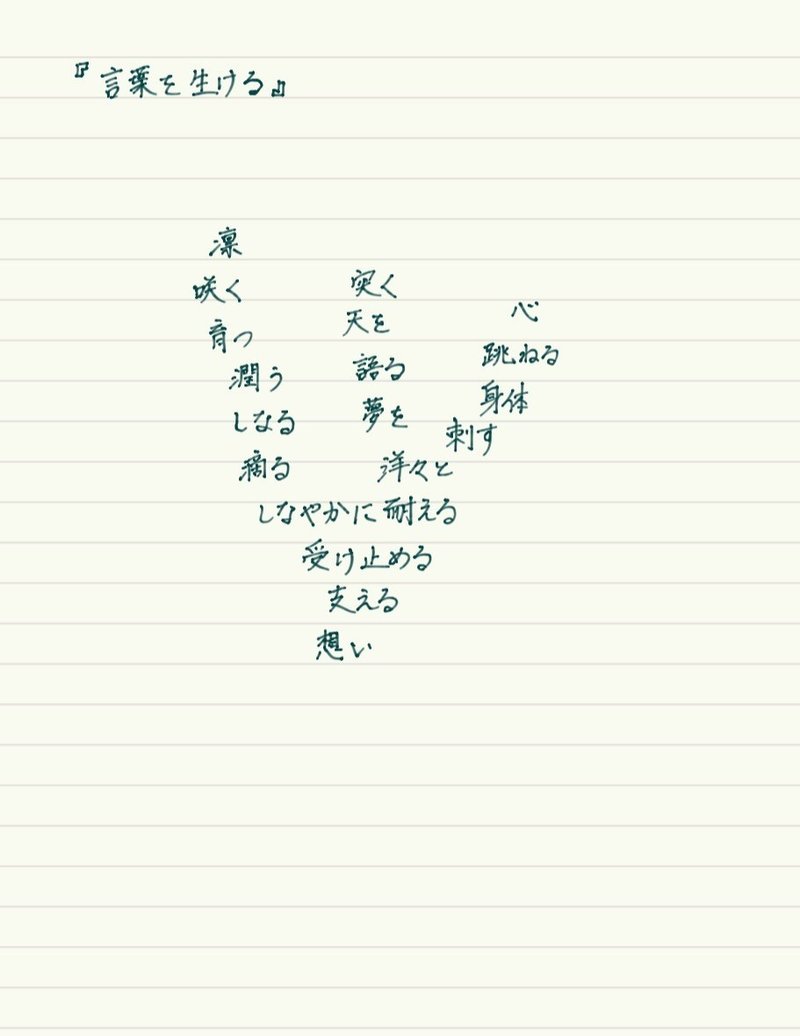 『言葉を生ける』
凛
咲く
育つ
潤う
しなる
滴る
突く
天を
語る
夢を
洋々と
心
跳ねる
身体
刺す
しなやかに耐える
受け止める
支える
想い